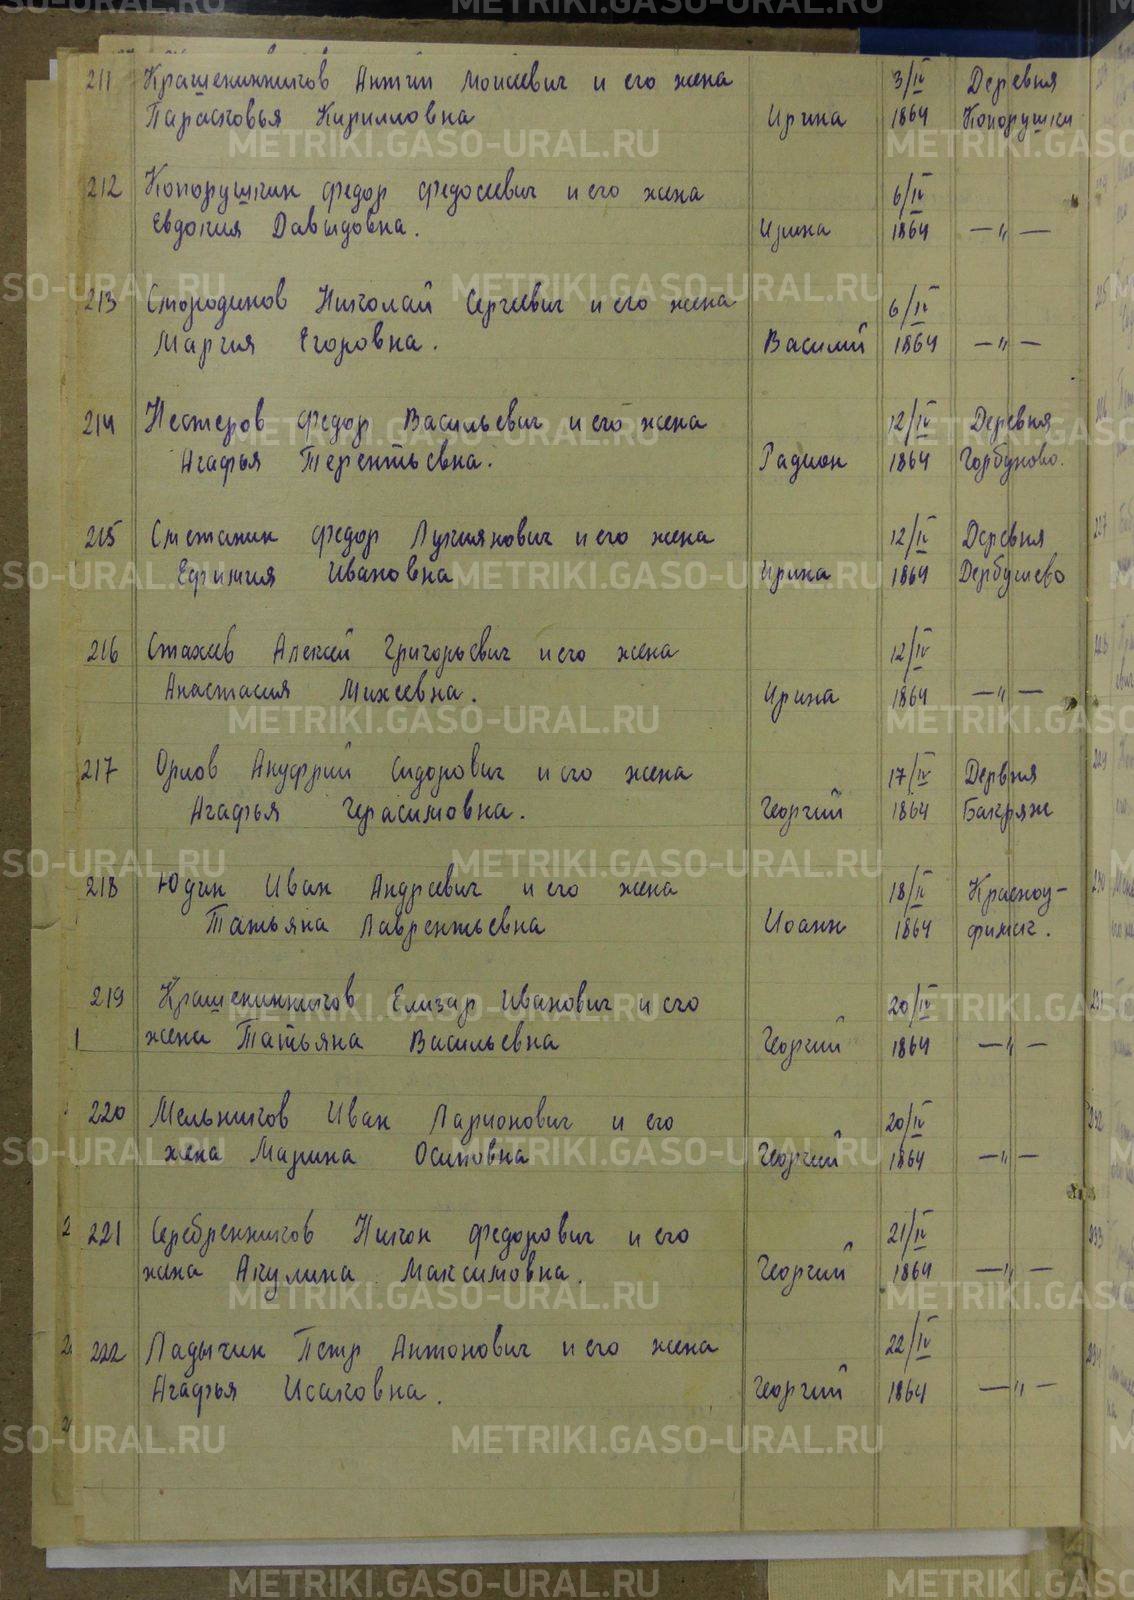 211 Крашенинников Антип Моисеевич и его жена 3/IV Деревня
Парасковья Кирилловна Ирина 1864 Копорушки
212 Копорушкин Федор Федосеевич и его жена 6/IV
Евдокия Давыдовна. Ирина 1864 —"—
213 Стородинов Николай Сергеевич и его жена 6/IV
Мария Егоровна. Василий 1864 —"—
214 Нестеров Федор Васильевич и его жена 12/IV Деревня
Агафья Терентьевна. Радион 1864 Горбуново.
215 Сметанин Федор Лукиянович и его жена 12/IV Деревня
Ефимия Ивановна Ирина 1864 Дербушево
216 Стахеев Алексей Григорьевич и его жена 12/IV
Анастасия Михеевна. Ирина 1864 —"—
217 Орлов Ануфрий Сидорович и его жена 17/IV Дервня
Агафья Герасимовна. Георгий 1864 Бакряж
218 Юдин Иван Андреевич и его жена 18/IV Красноу-
Татьяна Лаврентьевна Иоанн 1864 фимск.
219 Крашенинников Елизар Иванович и его 20/IV
жена Татьяна Васильевна Георгий 1864 —"—
220 Мельников Иван Ларионович и его 20/IV
жена Марина Осиповна Георгий 1864 —"—
221 Серебренников Никон Федорович и его 21/IV
жена Акулина Максимовна. Георгий 1864 —"—
222 Ладыгин Петр Антонович и его жена 22/IV
Агафья Исаковна. Георгий 1864 —"—
METRIKI.GASO-URAL.RU